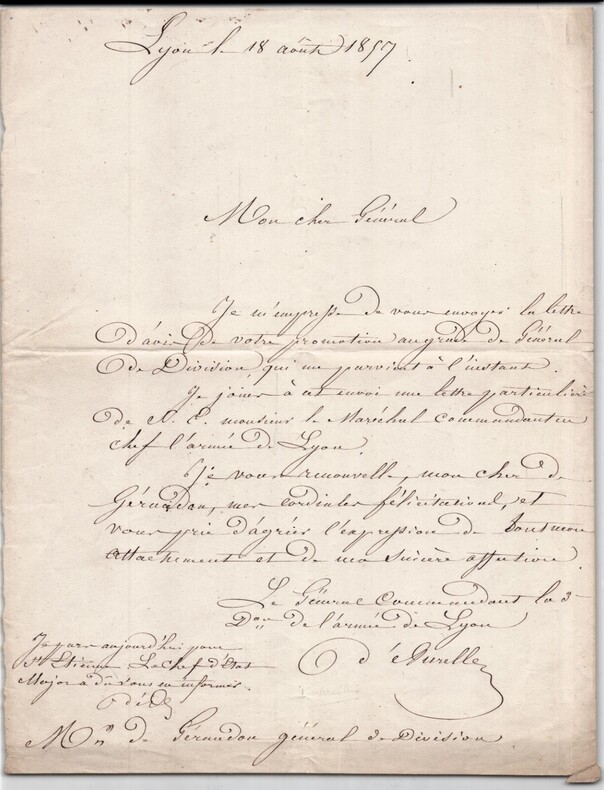 Lyon le 18 août 1857
Mon cher Général
Je m'empresse de vous envoyer la lettre
d'avis de votre promotion au grade de Général
de Division qui me parvient à l'instant.
Je joins à cet envoi une lettre particulière
de S. E. monsieur le Maréchal commandant en
chef l'armée de Lyon.
Je vous renouvelle, mon cher de
Géraudon, mes cordiales félicitations, et
vous prie d'agréer l'expression de tout mon
attachement et de ma sincère affection
Le Général commandant la 3e
Don de l'armée de Lyon
d'Aurelle
Je pars aujourd'hui pour
St Etienne Le chef d'Etat
Major a dû vous en informer.
Mr de Géraudon général de Division